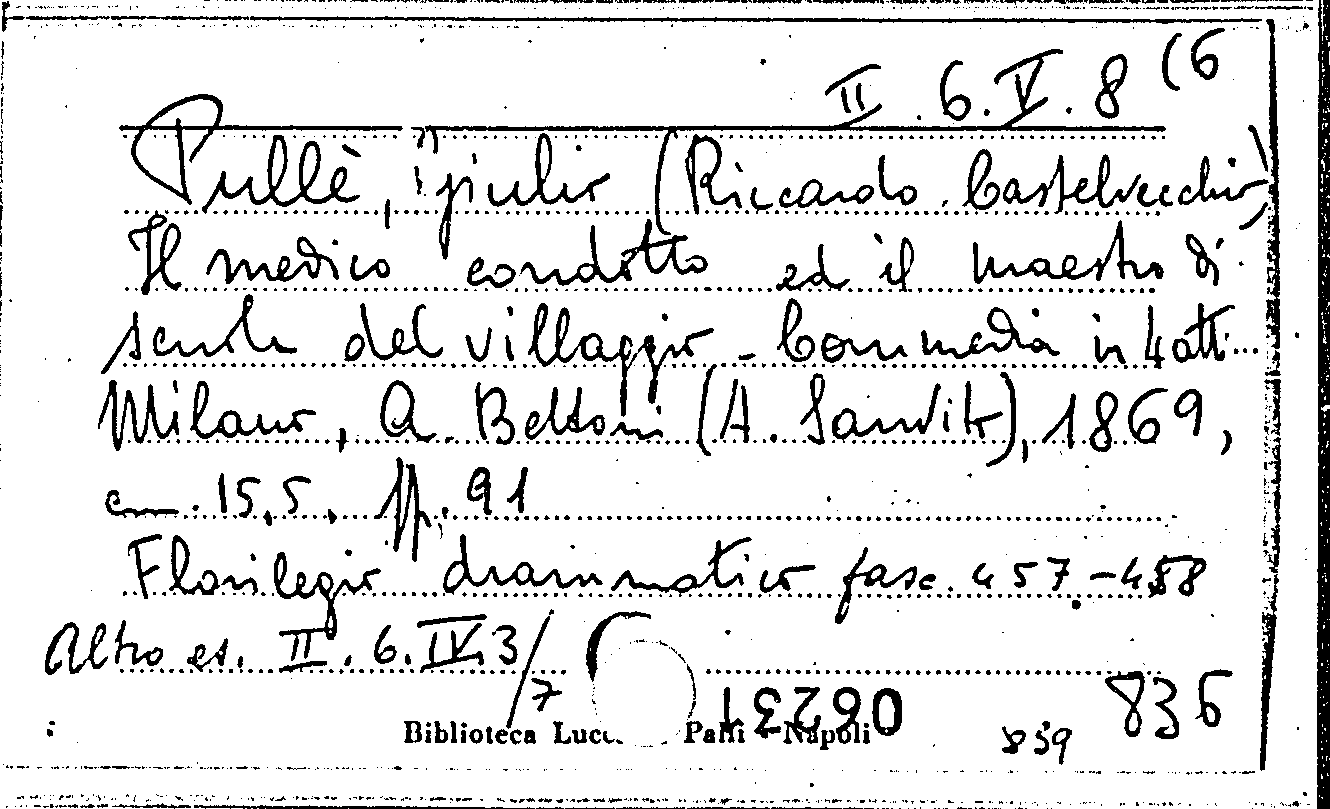 II. 6. V. 8 (6
Pullè, Giulio (Riccardo Castelvecchio)
Il medico condotto ed il maestro di
scuola del villaggio - Commedia in 4 atti
Milano, A. Bettoni (A. Sanvito), 1869,
cm. 15,5, pp. 91
Florilegio drammatico fasc. 457-458
Altro es. II. 6. IV. 3/7
06231
836
Biblioteca Palli - Napoli
859